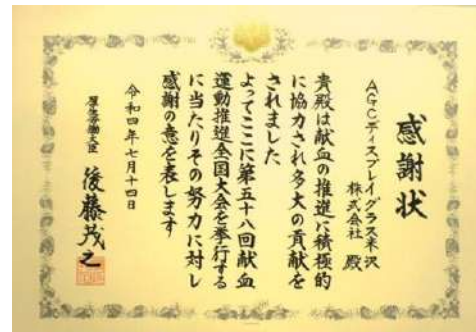 感謝状
AGCディスプレイグラス米沢
株式会社 殿
貴殿は献血の推進に積極的
に協力され多大の貢献を
されました
よってここに第五十八回献血
運動推進全国大会を挙行する
に当たりその努力に対し
感謝の意を表します
令和四年七月十四日
厚生労働大臣 後藤茂之